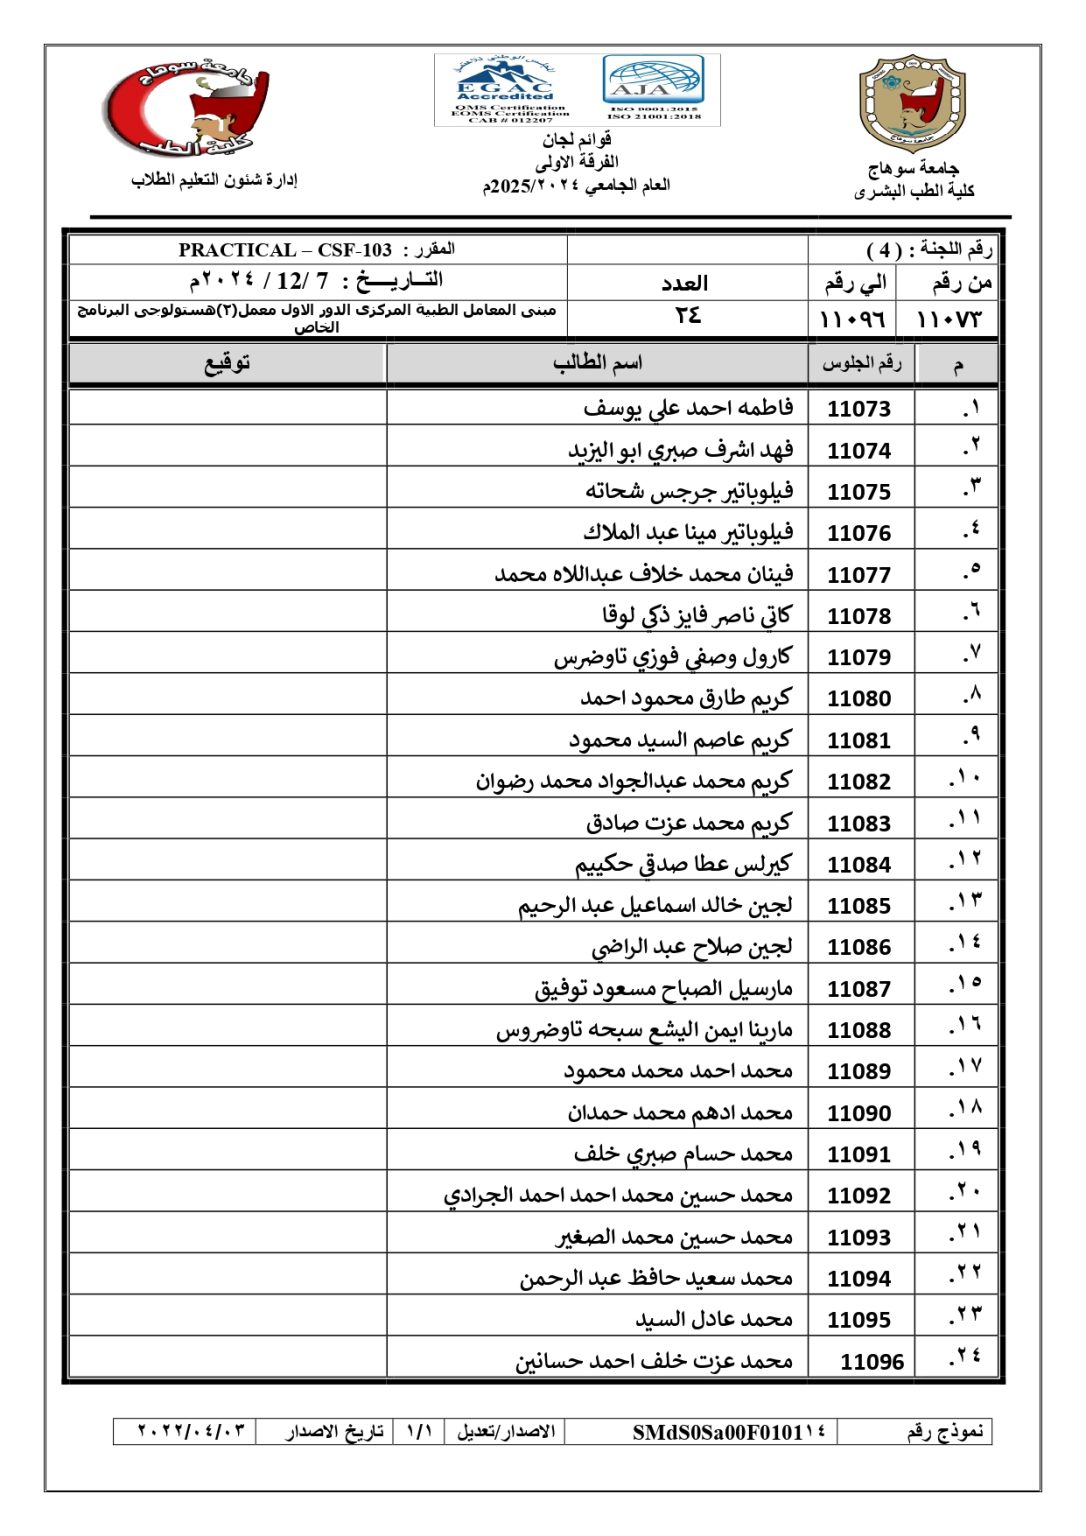 جامعة سوهاج
كلية الطب
EGAC
Accredited
QMS Certification
EOMS Certification
CAB # 012207
AJA
ISO 9001:2015
ISO 21001:2018
جامعة سوهاج
قوائم لجان
الفرقة الاولى
العام الجامعي ٢٠٢٤/2025م
جامعة سوهاج
كلية الطب البشرى
إدارة شئون التعليم الطلاب
رقم اللجنة : ( 4 )
المقرر : PRACTICAL – CSF-103
من رقم الي رقم العدد التــاريــــخ : 7 /12/ ٢٠٢٤م
١١٠٧٣ ١١٠٩٦ ٢٤ مبنى المعامل الطبية المركزى الدور الاول معمل(٢)هستولوجى البرنامج
الخاص
م رقم الجلوس اسم الطالب توقيع
١. 11073 فاطمه احمد علي يوسف
٢. 11074 فهد اشرف صبري ابو اليزيد
٣. 11075 فيلوباتير جرجس شحاته
٤. 11076 فيلوباتير مينا عبد الملاك
٥. 11077 فينان محمد خلاف عبداللاه محمد
٦. 11078 كاتي ناصر فايز ذكي لوقا
٧. 11079 كارول وصفي فوزي تاوضرس
٨. 11080 كريم طارق محمود احمد
٩. 11081 كريم عاصم السيد محمود
١٠. 11082 كريم محمد عبدالجواد محمد رضوان
١١. 11083 كريم محمد عزت صادق
١٢. 11084 كيرلس عطا صدقي حكييم
١٣. 11085 لجين خالد اسماعيل عبد الرحيم
١٤. 11086 لجين صلاح عبد الراضي
١٥. 11087 مارسيل الصباح مسعود توفيق
١٦. 11088 مارينا ايمن اليشع سبحه تاوضروس
١٧. 11089 محمد احمد محمد محمود
١٨. 11090 محمد ادهم محمد حمدان
١٩. 11091 محمد حسام صبري خلف
٢٠. 11092 محمد حسين محمد احمد احمد الجرادي
٢١. 11093 محمد حسين محمد الصغير
٢٢. 11094 محمد سعيد حافظ عبد الرحمن
٢٣. 11095 محمد عادل السيد
٢٤. 11096 محمد عزت خلف احمد حسانين
نموذج رقم SMdS0Sa00F0101١٤ الاصدار/تعديل ١/١ تاريخ الاصدار ٢٠٢٢/٠٤/٠٣